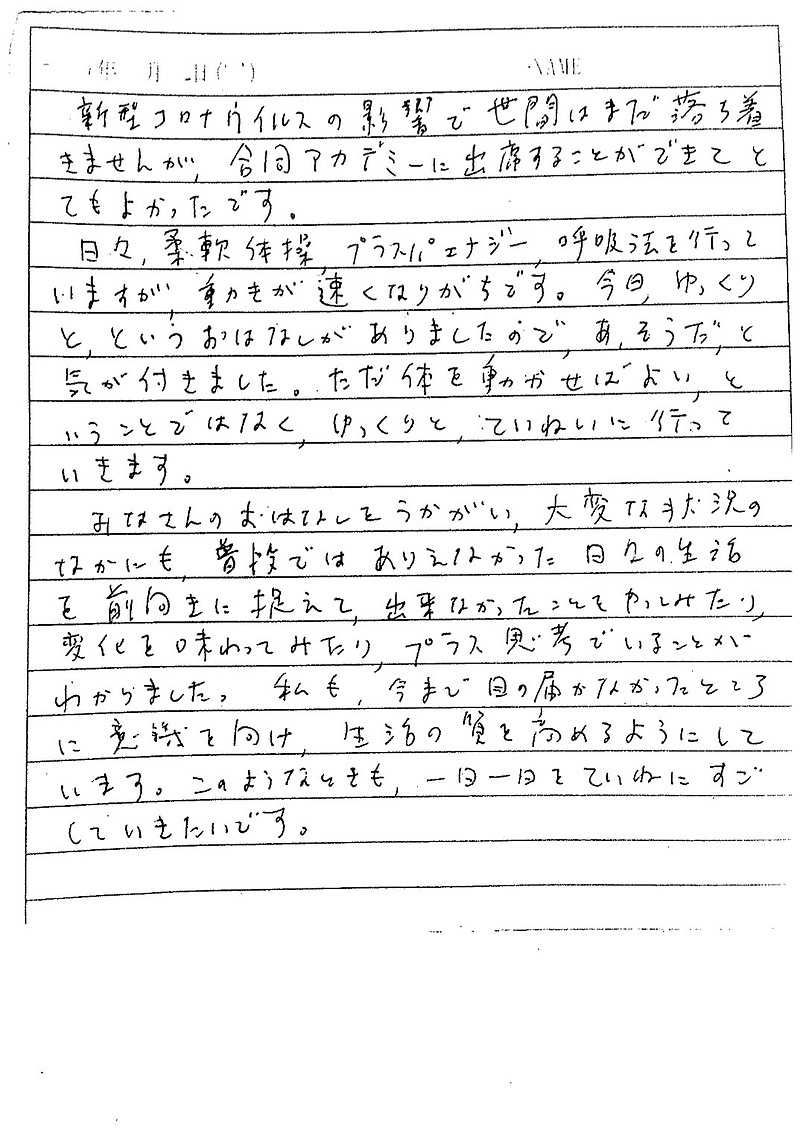 年 月 日( ) NAME
新型コロナウイルスの影響で世間はまだ落ち着
きませんが、合同アカデミーに出席することができてと
てもよかったです。
日々、柔軟体操、プラスパエナジー、呼吸法を行って
いますが、動きが速くなりがちです。今日、ゆっくり
と、というおはなしがありましたので、あ、そうだ、と
気が付きました。ただ体を動かせばよい、と
いうことではなく、ゆっくりと、ていねいに行って
いきます。
みなさんのおはなしをうかがい、大変な状況の
なかにも、普段ではありえなかった日々の生活
を前向きに捉えて、出来なかったことをやってみたり、
変化を味わってみたり、プラス思考でいることが
わかりました。私も、今まで目の届かなかったところ
に意識を向け、生活の質を高めるようにして
います。このようなときも、一日一日をていねにすご
していきたいです。